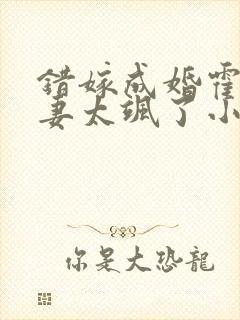 错嫁成婚霍
妻太飒了小
你是大恐龍